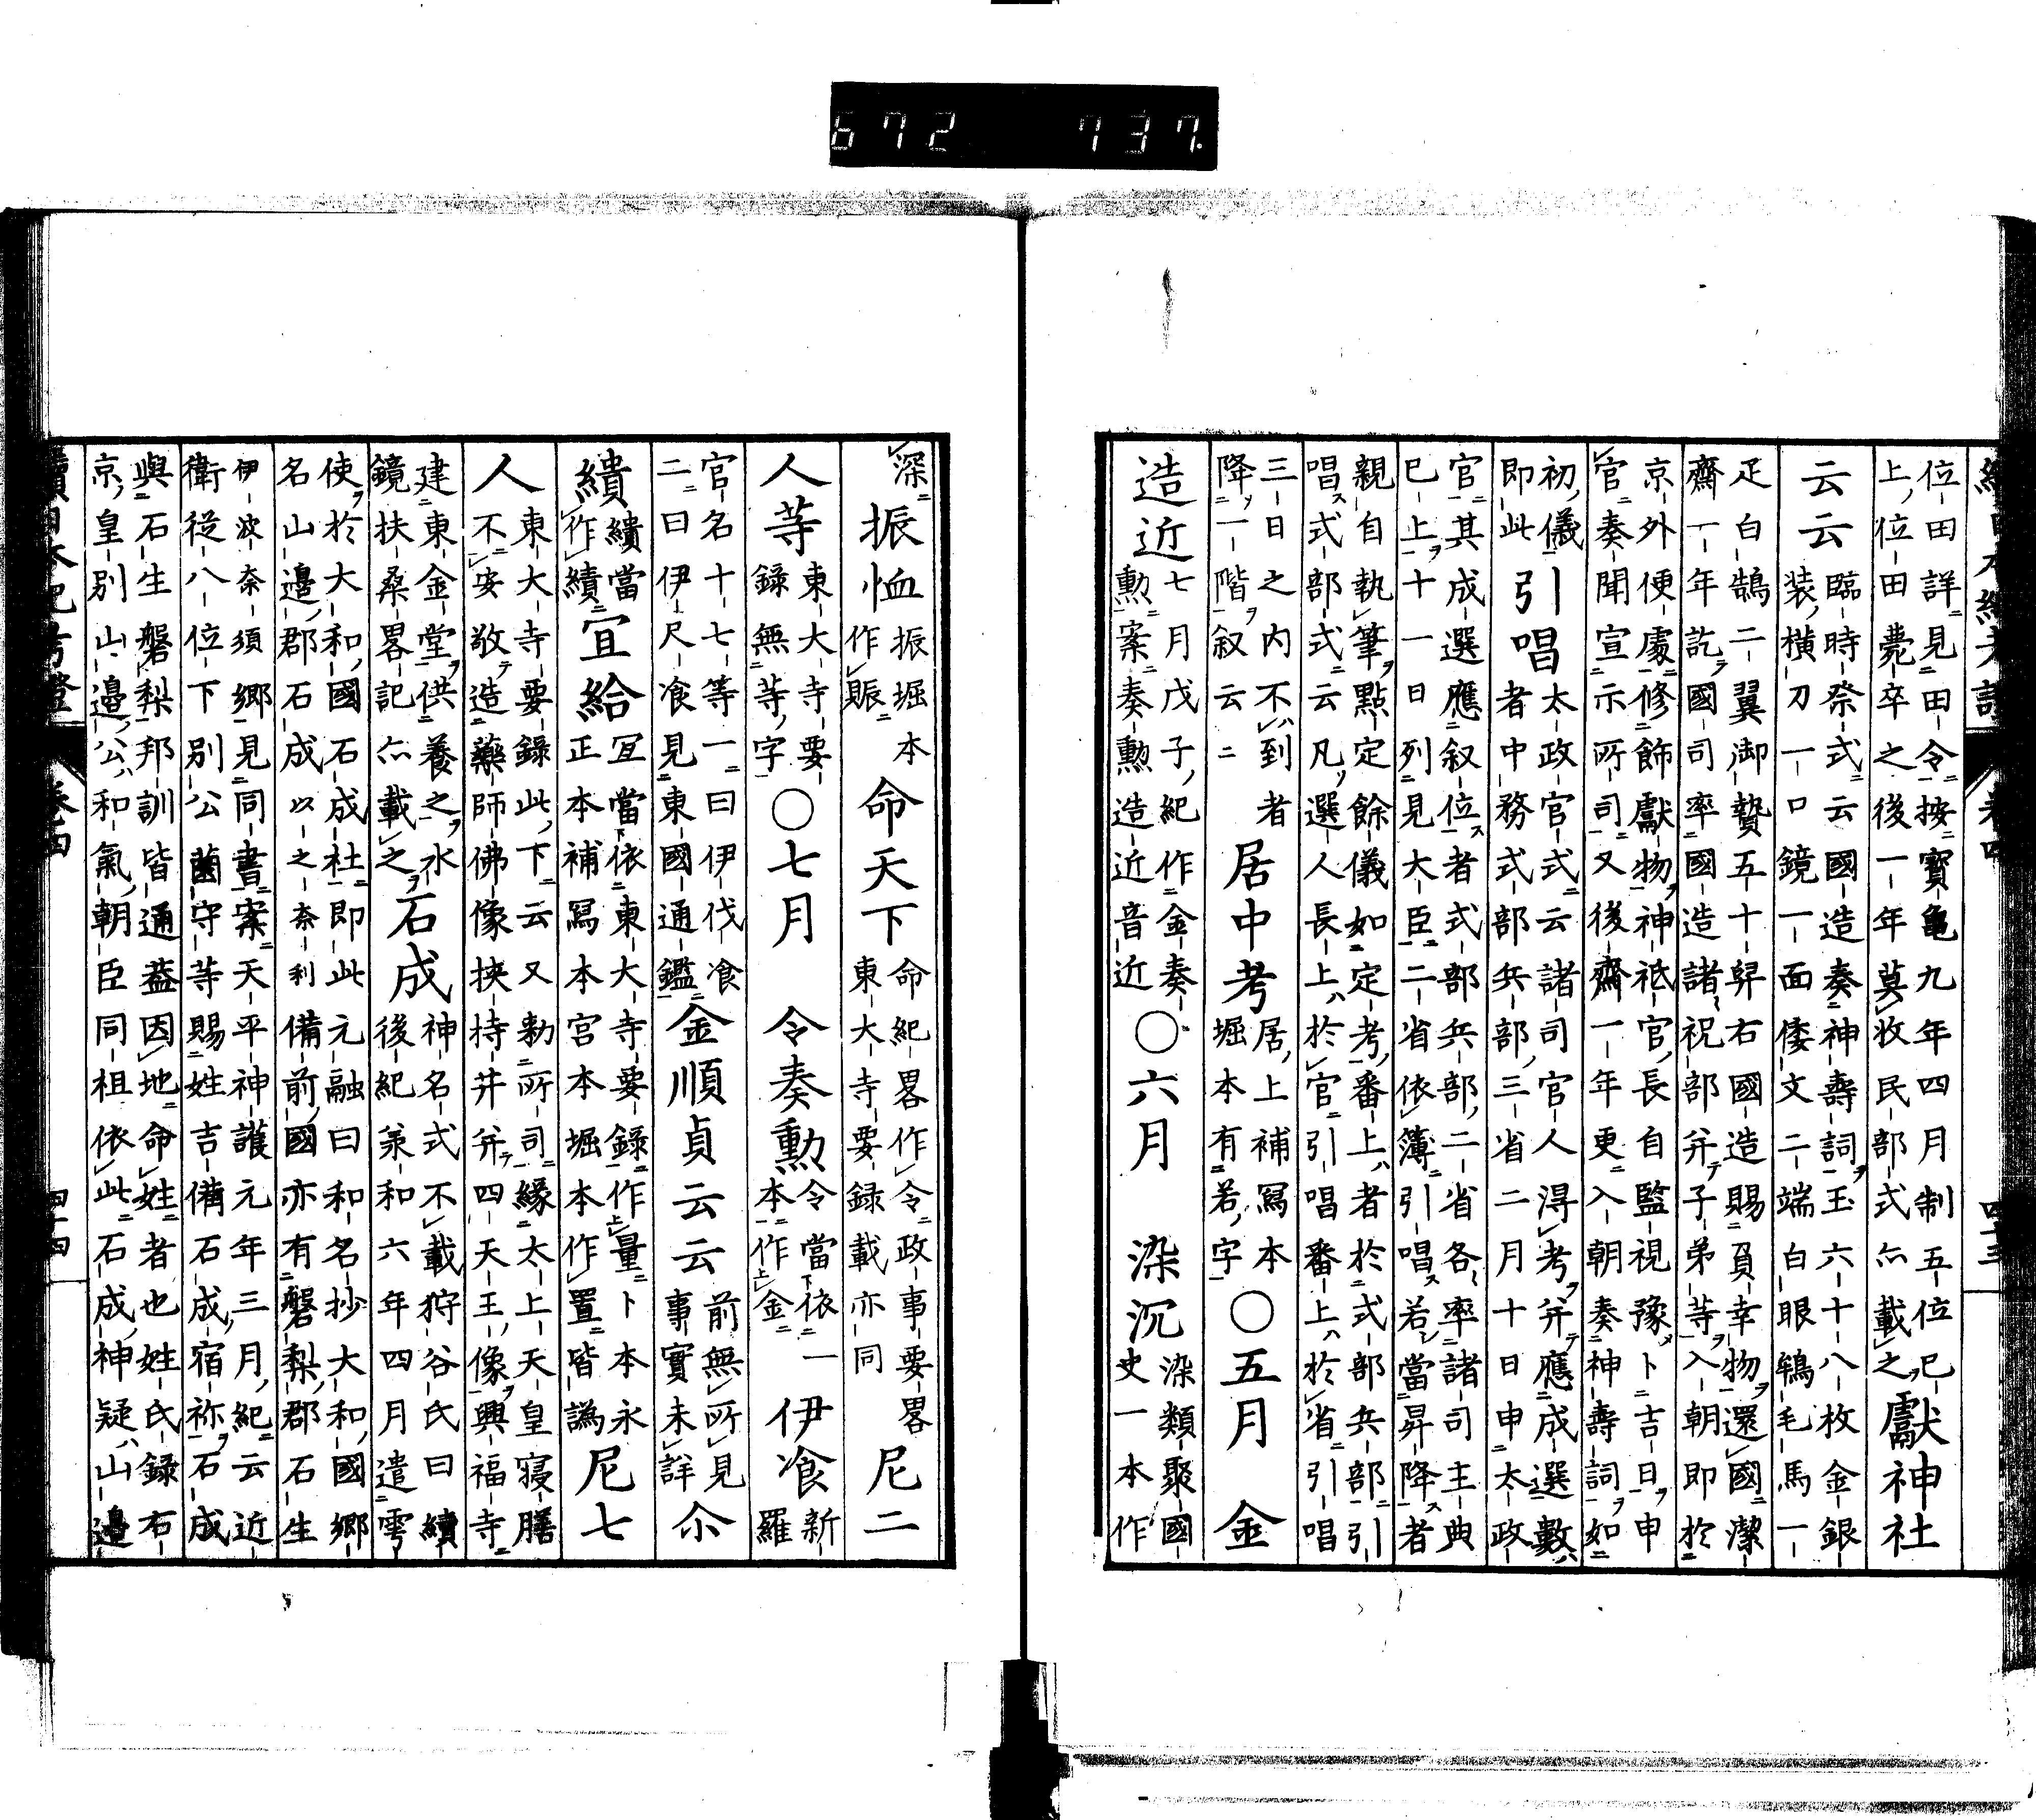 672 737.
續日本紀考證 卷四 四十三
位田詳見田令按寳龜九年四月制五位巳
上位田薨卒之後一年莫收民部式亦載之獻神社
云云臨時祭式云國造奏神壽詞玉六十八枚金銀
装横刀一口鏡一面倭文二端白眼鵯毛馬一
疋白鵠二翼御贄五十舁右國造賜負幸物還國潔
齋一年訖國司率國造諸祝部并子弟等入朝即於
京外便處修飾獻物神祇官長自監視豫卜吉日申
官奏聞宣示所司又後齋一年更入朝奏神壽詞如
初儀
即此引唱太政官式云諸司官人得考并應成選數
者中務式部兵部三省二月十日申太政
官其成選應叙位者式部兵部二省各率諸司主典
巳上十一日列見大臣二省依簿引唱若當昇降者
親自執筆點定餘儀如定考番上者於式部兵部引
唱式部式云凡選人長上於官引唱番上於省引唱
三日之内不到者
降一階叙云〻居中考居上補寫本
堀本有若字〇五月 金
造近七月戊子紀作金奏
勲案奏勲造近音近〇六月 染沉染類聚國
史一本作
深振恤振堀本
作賑命天下命紀畧作令政事要畧
東大寺要録載亦同尼二
人等東大寺要
録無等字〇七月 令奏勲令當依一
本作金伊飡新
羅
官名十七等一曰伊伐飡
二曰伊尺飡見東國通鑑金順貞云云前無所見
事實未詳尒
繢繢當
作績宜給宜當依東大寺要録作量卜本永
正本補冩本宮本堀本作置皆譌尼七
人東大寺要録此下云又勅所司縁太上天皇寝膳
不安敬造藥師佛像挾持并并四天王像興福寺
建東金堂供養之水
鏡扶桑畧記亦載之石成神名式不載狩谷氏曰續
後紀羕和六年四月遣雩
使於大和國石成社即此元融曰和名抄大和國郷
名山邉郡石成以之奈利備前國亦有磐梨郡石生
伊波奈須郷見同書案天平神護元年三月紀云近
衛從八位下別公薗守等賜姓吉備石成宿祢石成
與石生磐梨邦訓皆通葢因地命姓者也姓氏録右
京皇別山邉公和氣朝臣同祖依此石成神疑山邉
續日本紀考證 卷四 四十四